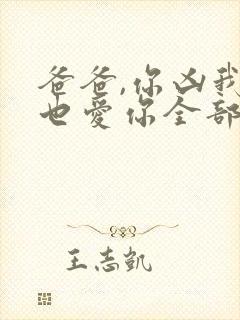 爸爸,你凶我
也爱你全部
王志凯